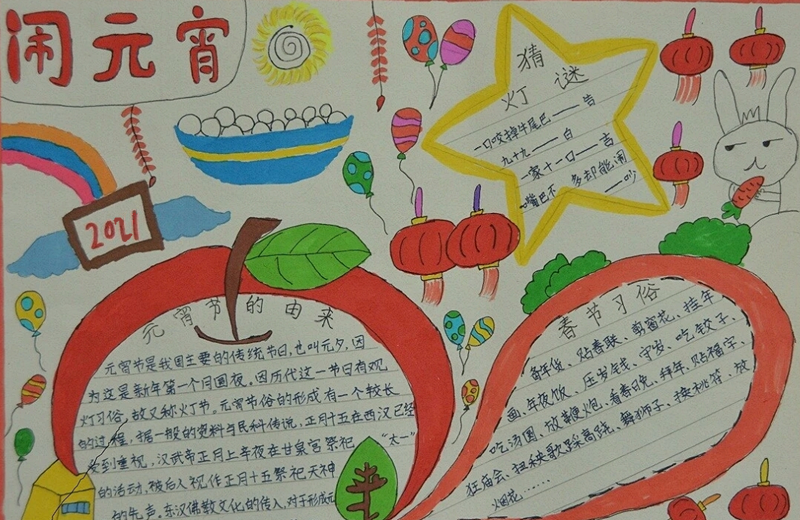 闹元宵
2021
猜
灯谜
一口咬掉牛尾巴——告
九十九——白
一家十一口——吉
嘴巴不多却能闹
——吵
元宵节的由来
元宵节是我国主要的传统节日,也叫元夕,因
为这是新年第一个月圆夜。因历代这一节日有观
灯习俗,故又称灯节。元宵节俗的形成有一个较长
的过程,据一般的资料与民科传说,正月十五在西汉已经
受到重视,汉武帝正月上辛夜在甘泉宫祭祀“太一”
的活动,被后人视作正月十五祭祀天神
的先声。东汉佛教文化的传入,对于形成元
春节习俗
备年货、贴春联、剪窗花、挂年
画、年夜饭、压岁钱、守岁、吃饺子、
吃汤圆、放鞭炮、看春晚、拜年、贴福字、
狂庙会、扭秧歌踩高跷、舞狮子、换桃符、放
烟花……